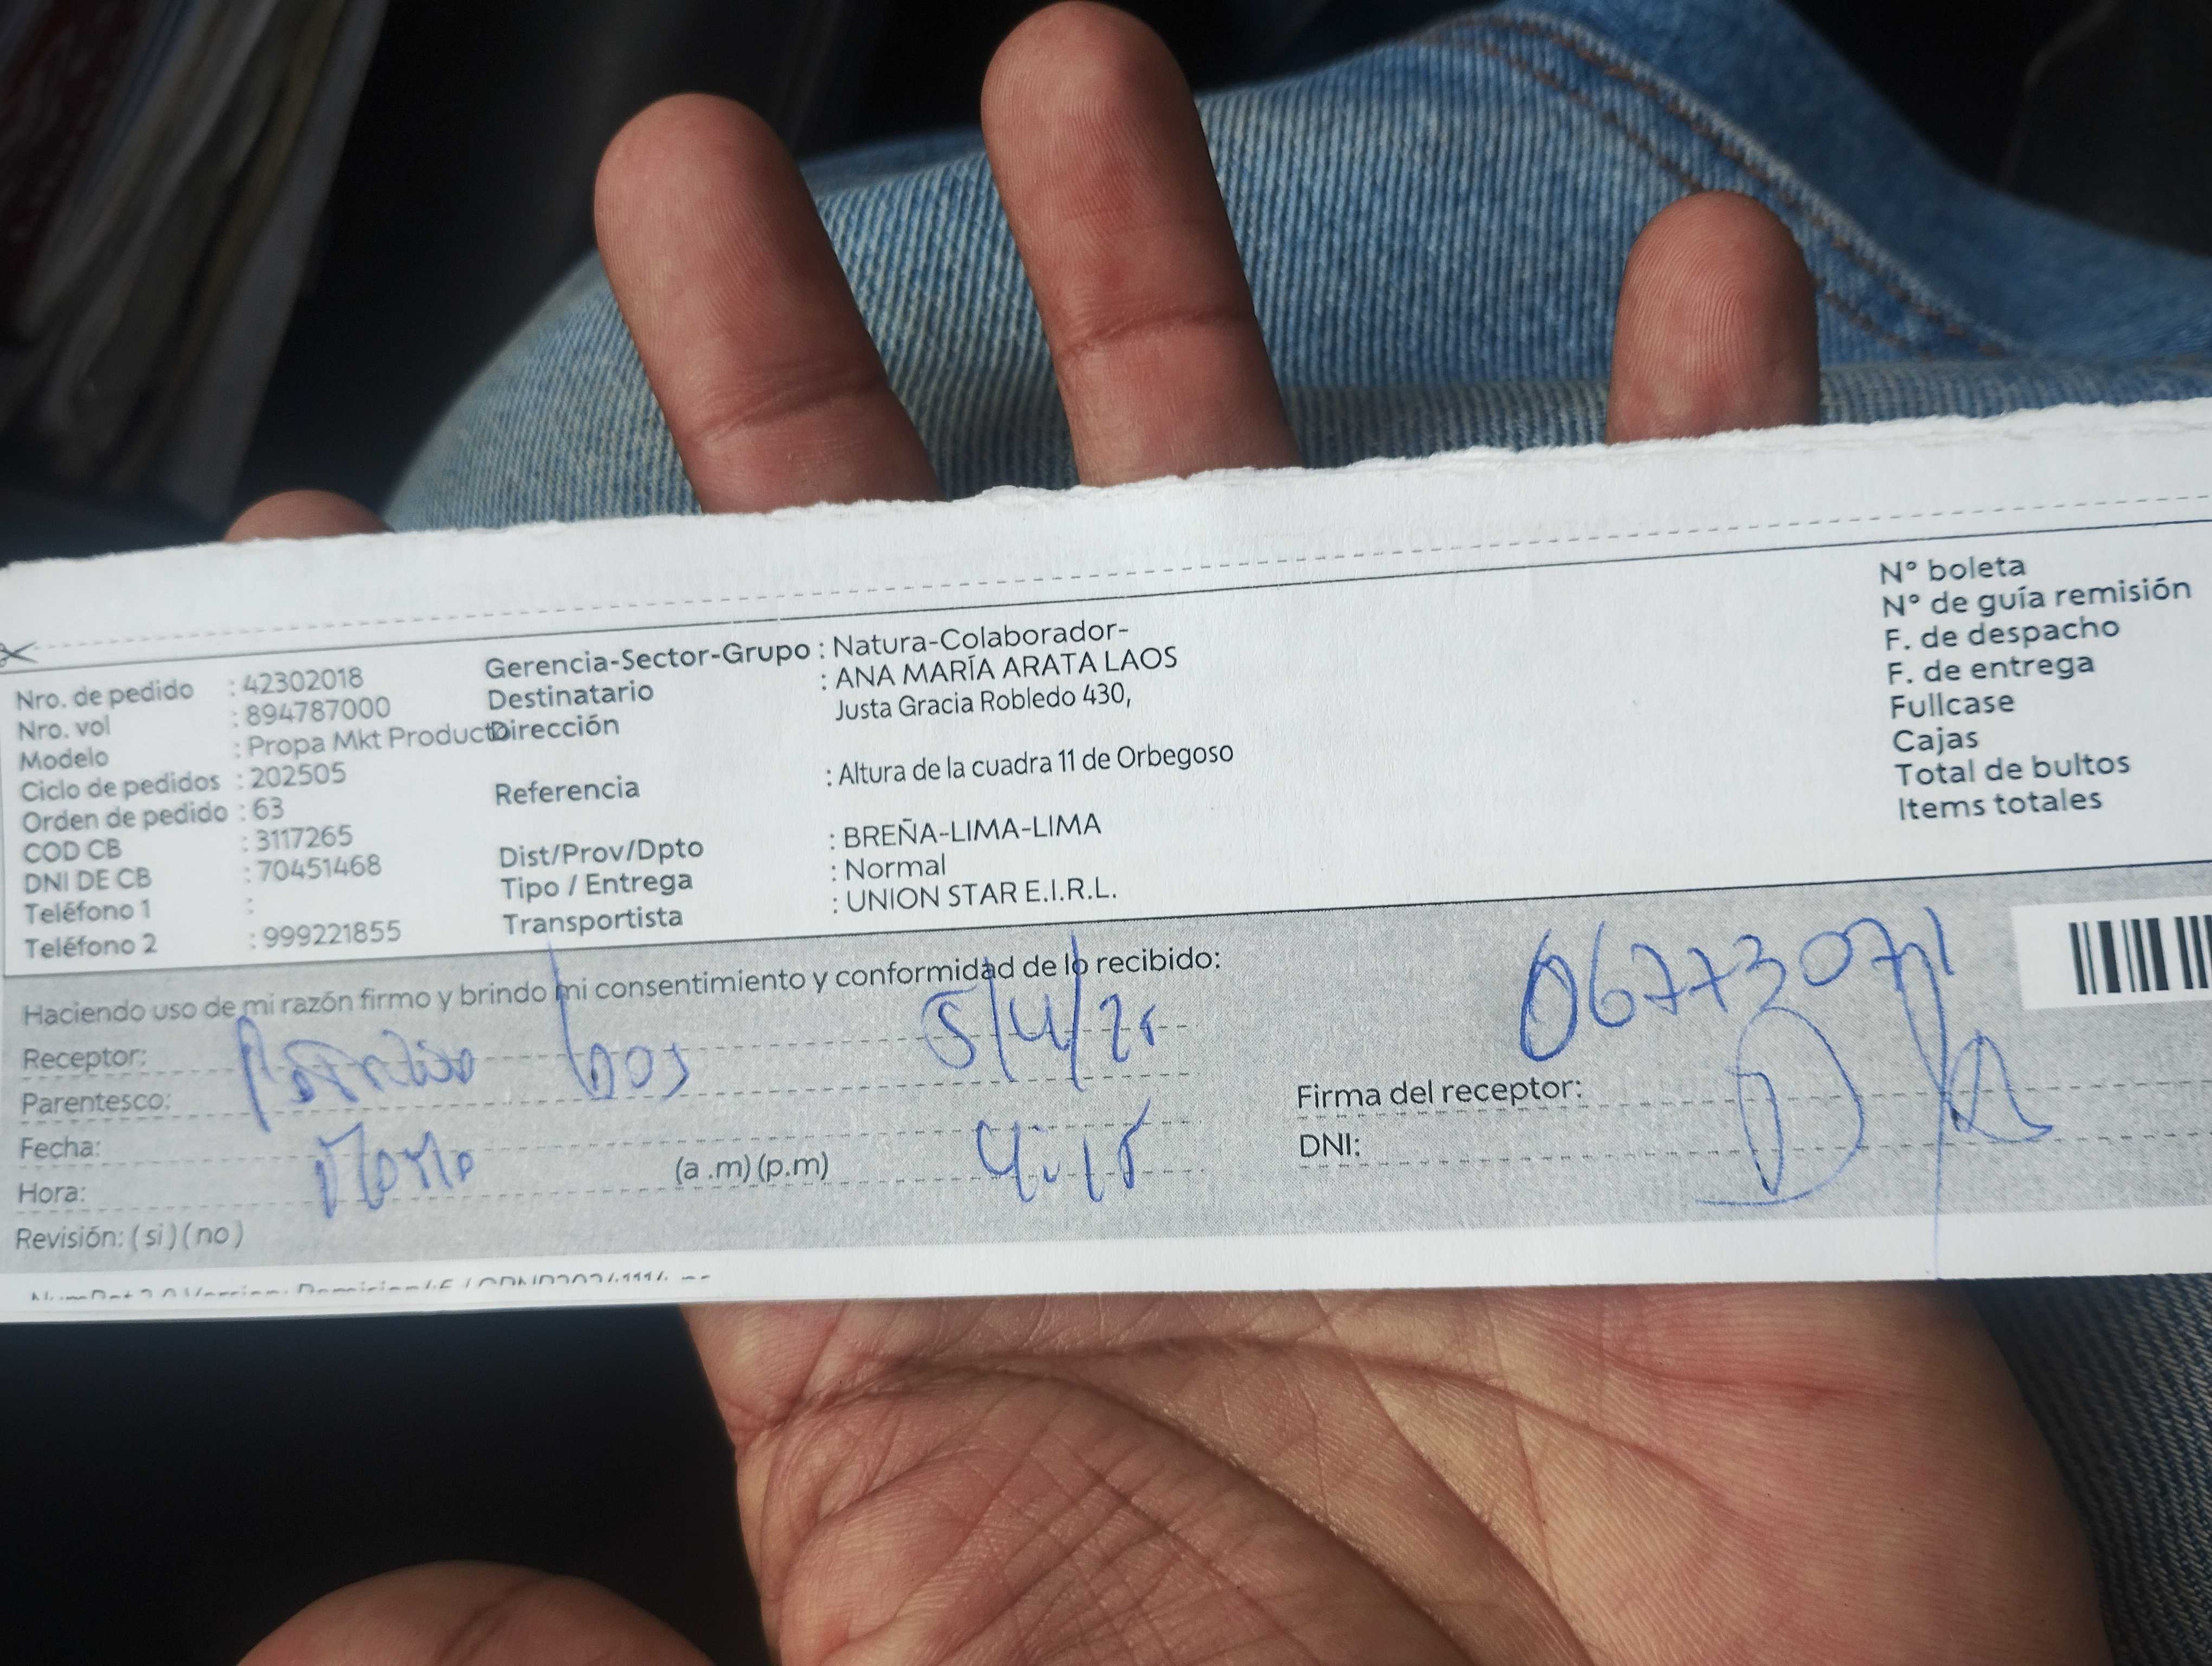 Nro. de pedido : 42302018
Nro. vol : 894787000
Modelo : Propa Mkt Producto
Ciclo de pedidos : 202505
Orden de pedido : 63
COD CB : 3117265
DNI DE CB : 70451468
Teléfono 1 :
Teléfono 2 : 999221855
Gerencia-Sector-Grupo : Natura-Colaborador-
Destinatario : ANA MARÍA ARATA LAOS
Dirección Justa Gracia Robledo 430,
Referencia : Altura de la cuadra 11 de Orbegoso
Dist/Prov/Dpto : BREÑA-LIMA-LIMA
Tipo / Entrega : Normal
Transportista : UNION STAR E.I.R.L.
N° boleta
N° de guía remisión
F. de despacho
F. de entrega
Fullcase
Cajas
Total de bultos
Items totales
Haciendo uso de mi razón firmo y brindo mi consentimiento y conformidad de lo recibido:
Receptor:
Parentesco:
Fecha:
Hora: (a .m) (p.m) 4:15
Revisión: ( si ) ( no )
Firma del receptor:
DNI: